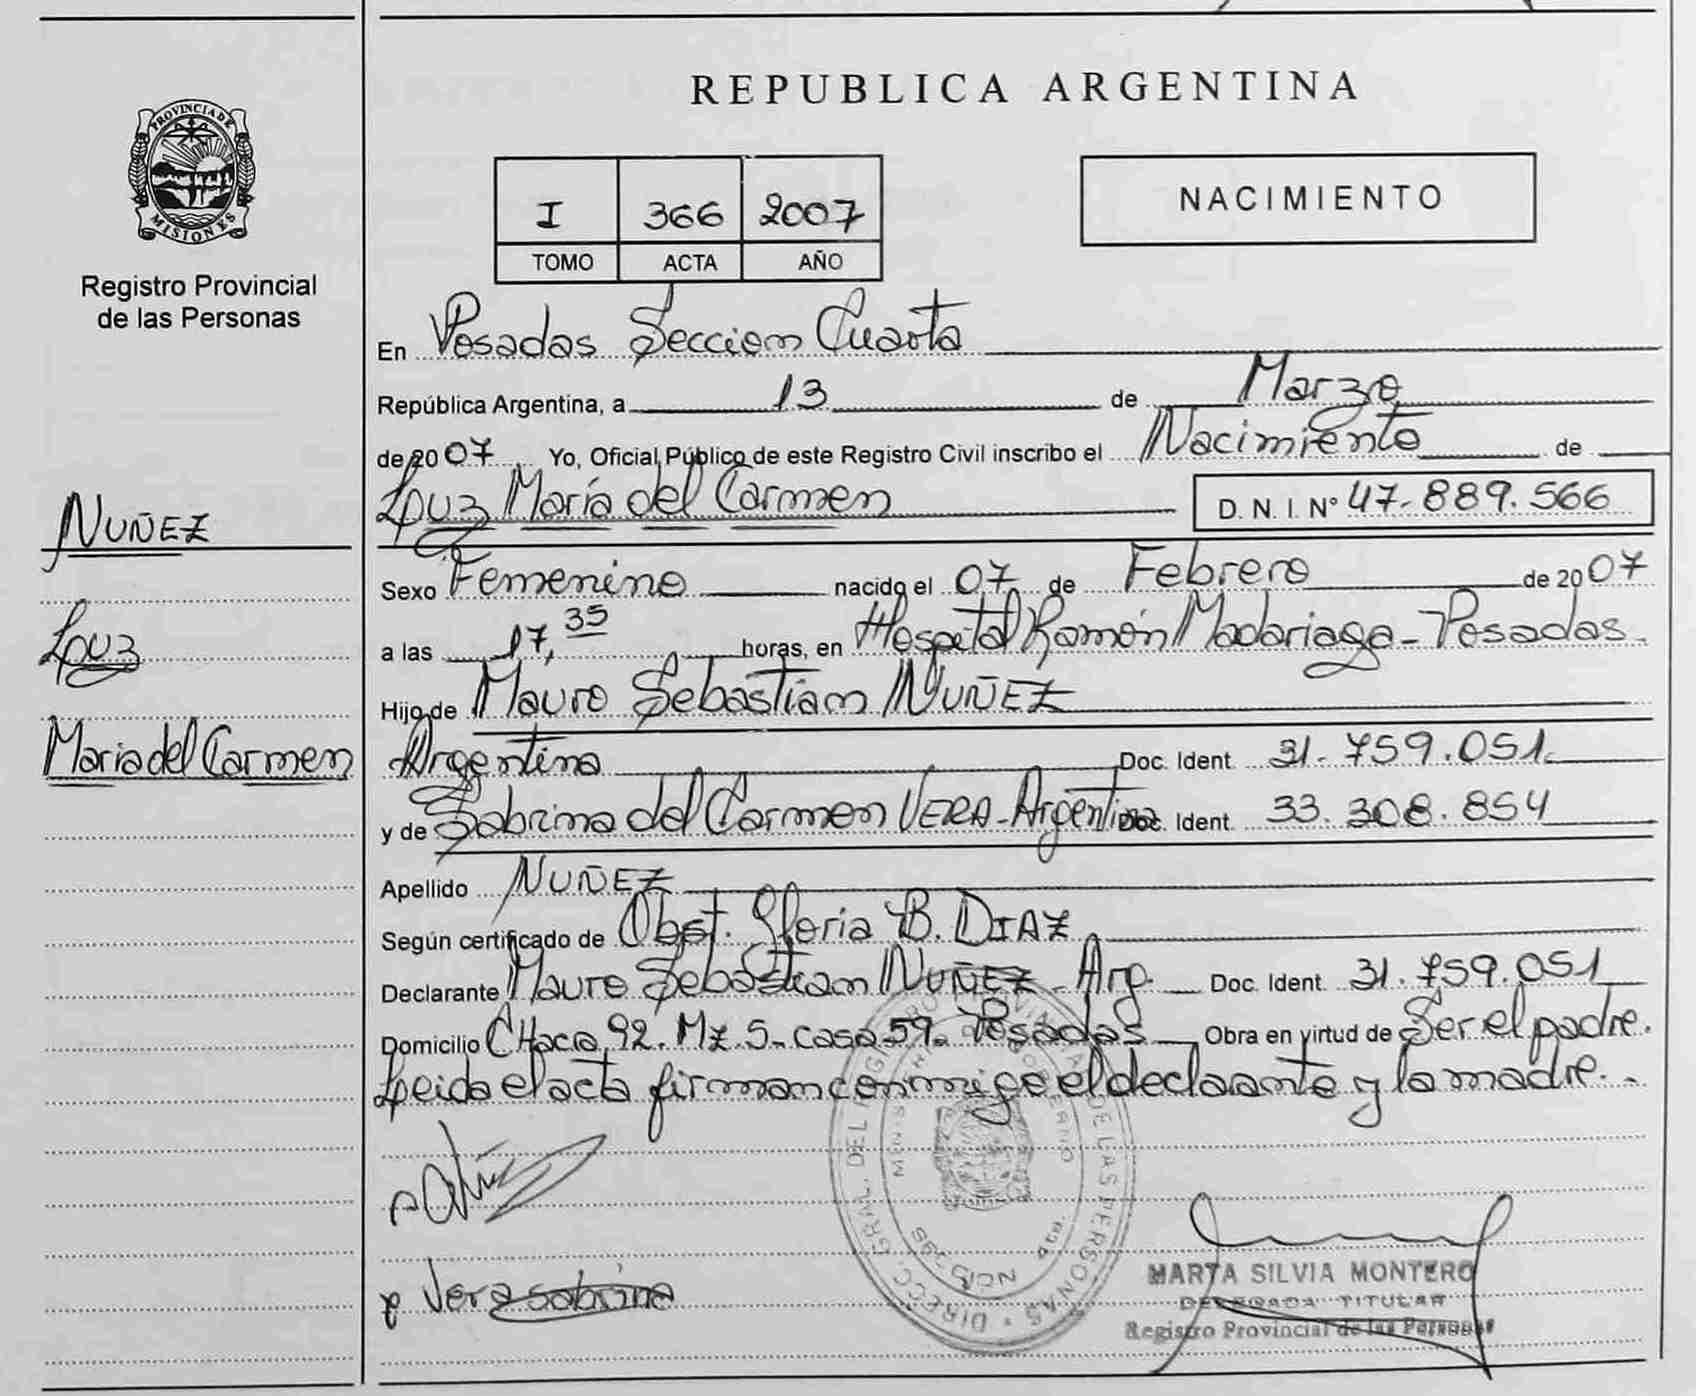 REPUBLICA ARGENTINA
PROVINCIA DE
MISIONES
Registro Provincial
de las Personas
I 366 2007
TOMO ACTA AÑO
NACIMIENTO
En Posadas Seccion Cuarta
República Argentina, a 13 de Marzo
de 2007 Yo, Oficial Público de este Registro Civil inscribo el Nacimiento de
Luz María del Carmen D. N. I. Nº 47.889.566
NUÑEZ
Luz
Maria del Carmen
Sexo Femenino nacido el 07 de Febrero de 2007
a las 17,35 horas, en Hospital Ramón Madariaga - Posadas.
Hijo de Mauro Sebastian NUÑEZ
Argentina Doc. Ident. 31.759.051.
y de Sabrina del Carmen VERA - Argentina Doc. Ident. 33.308.854
Apellido NUÑEZ
Según certificado de Obst. Gloria B. DIAZ
Declarante Mauro Sebastian NUÑEZ - Arg. Doc. Ident. 31.759.051
Domicilio CHacra 92. Mz 5- casa 59. Posadas Obra en virtud de Ser el padre.
Leida el acta firman conmigo el declarante y la madre. -
Vera Sabrina
DIRECC. GRAL. DEL REGISTRO PROVINCIAL DE LAS PERSONAS
MARTA SILVIA MONTERO
DELEGADA TITULAR
Registro Provincial de las Personas